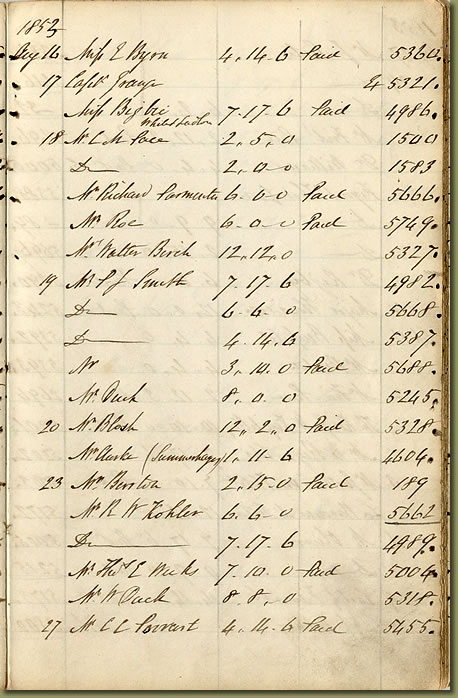 1852
16 Miss E Byrn 4.14.6 Paid 5360.
17 Capt. Grange 5321.
Miss Bigbie 7.17.6 Paid 4986.
18 Mr. C M Pace 2.5.0 1500
Do 2.0.0 1583
Mr Richard Sarmenter 6.0.0 Paid 5666.
Mr. Roe 6.0.0 Paid 5749.
Mr. Walter Birch 12.12.0 5327.
19 Mr S J Smith 7.17.6 4982.
Do 6.6.0 5668.
Do 4.14.6 5387.
Mr 3.10.0 Paid 5688.
Mr. Duck 8.0.0 5245.
20 Mr Blosh 12.2.0 Paid 5328.
1.11.6 4604.
23 2.15.0 Paid 189
Mr. R W Kohler 6.6.0 5662
Do 7.17.6 4989.
Mr Thos. E Weeks 7.10.0 Paid 5004.
Mr W Duck 8.8.0 5318.
27 Mr C C 4.14.6 Paid 5455.